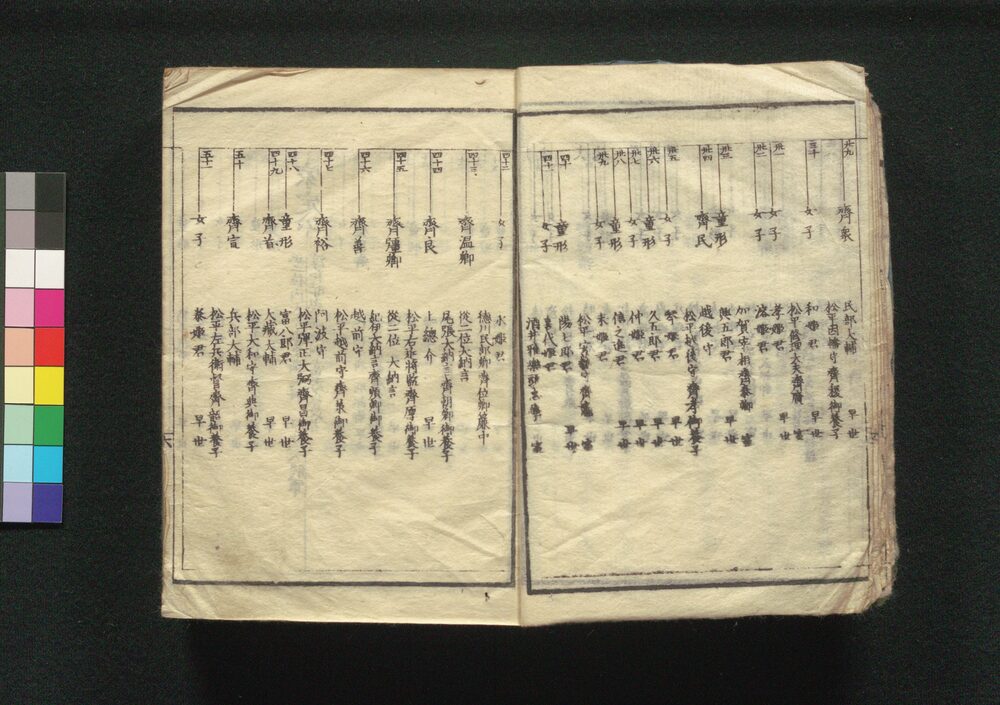 廿九 齊衆 民部大輔 早世
松平因幡守齊稷御養子
三十 女子 和姫君 早世
松平修理大夫齊廣 室
卅一 女子 孝姫君 早世
卅二 女子 溶姫君
加賀宰相齊泰卿 室
卅三 童形 與五郎君 早世
卅四 齊民 越後守
松平越後守齊孝御養子
卅五 女子 琴姫君 早世
卅六 童形 久五郎君 早世
卅七 女子 仲姫君 早世
卅八 童形 信之進君 早世
卅九 女子 末姫君
松平安藝守齊肅 室
四十 童形 陽七郎君 早世
四十一 女子 喜代姫君
酒井雅樂頭忠學 室
四十二 女子 永姫君
德川民部卿齊位卿簾中
四十三 齊温卿 從二位大納言
尾張大納言齊朝卿御養子
四十四 齊良 上總介 早世
松平右近將監齊厚御養子
四十五 齊彊卿 從二位 大納言
紀伊大納言齊順卿御養子
四十六 齊善 越前守
松平越前守齊承御養子
四十七 齊裕 阿波守
松平彈正大弼齊昌御養子
四十八 童形 富八郎君 早世
四十九 齊省 大藏大輔 早世
松平大和守齊典御養子
五十 齊宣 兵部大輔
松平左兵衛督齊韶御養子
五十一 女子 泰姫君
六